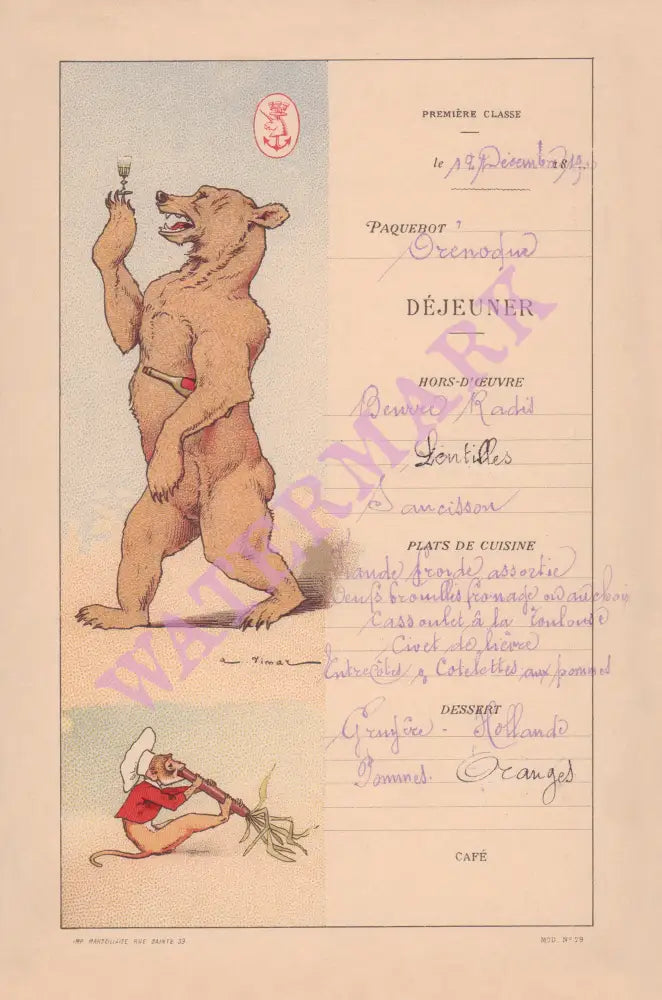 PREMIÈRE CLASSE
le 12 Décembre 18
PAQUEBOT
Orénoque
DÉJEUNER
HORS-D'ŒUVRE
Beurre Radis
Lentilles
Saucisson
PLATS DE CUISINE
Viande froide assortie
Oeufs brouillés fromage ou au choix
Cassoulet à la Toulouse
Civet de lièvre
Entrecôtes & Cotelettes aux pommes
DESSERT
Gruyère - Hollande
Pommes. Oranges
CAFÉ
IMP. MARSEILLAISE RUE SAINTE 39
MOD. Nº 79
WATERMARK